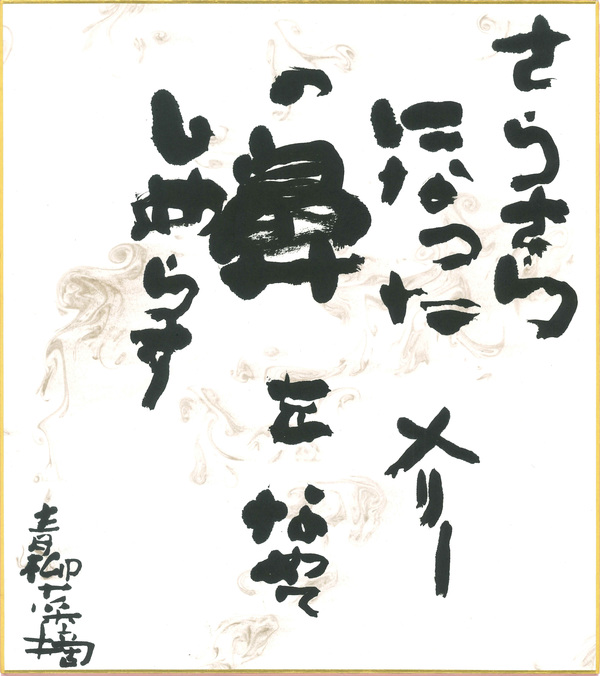 さらさら
になった メリー
の鼻を なめて
しめらす
青柳菜摘